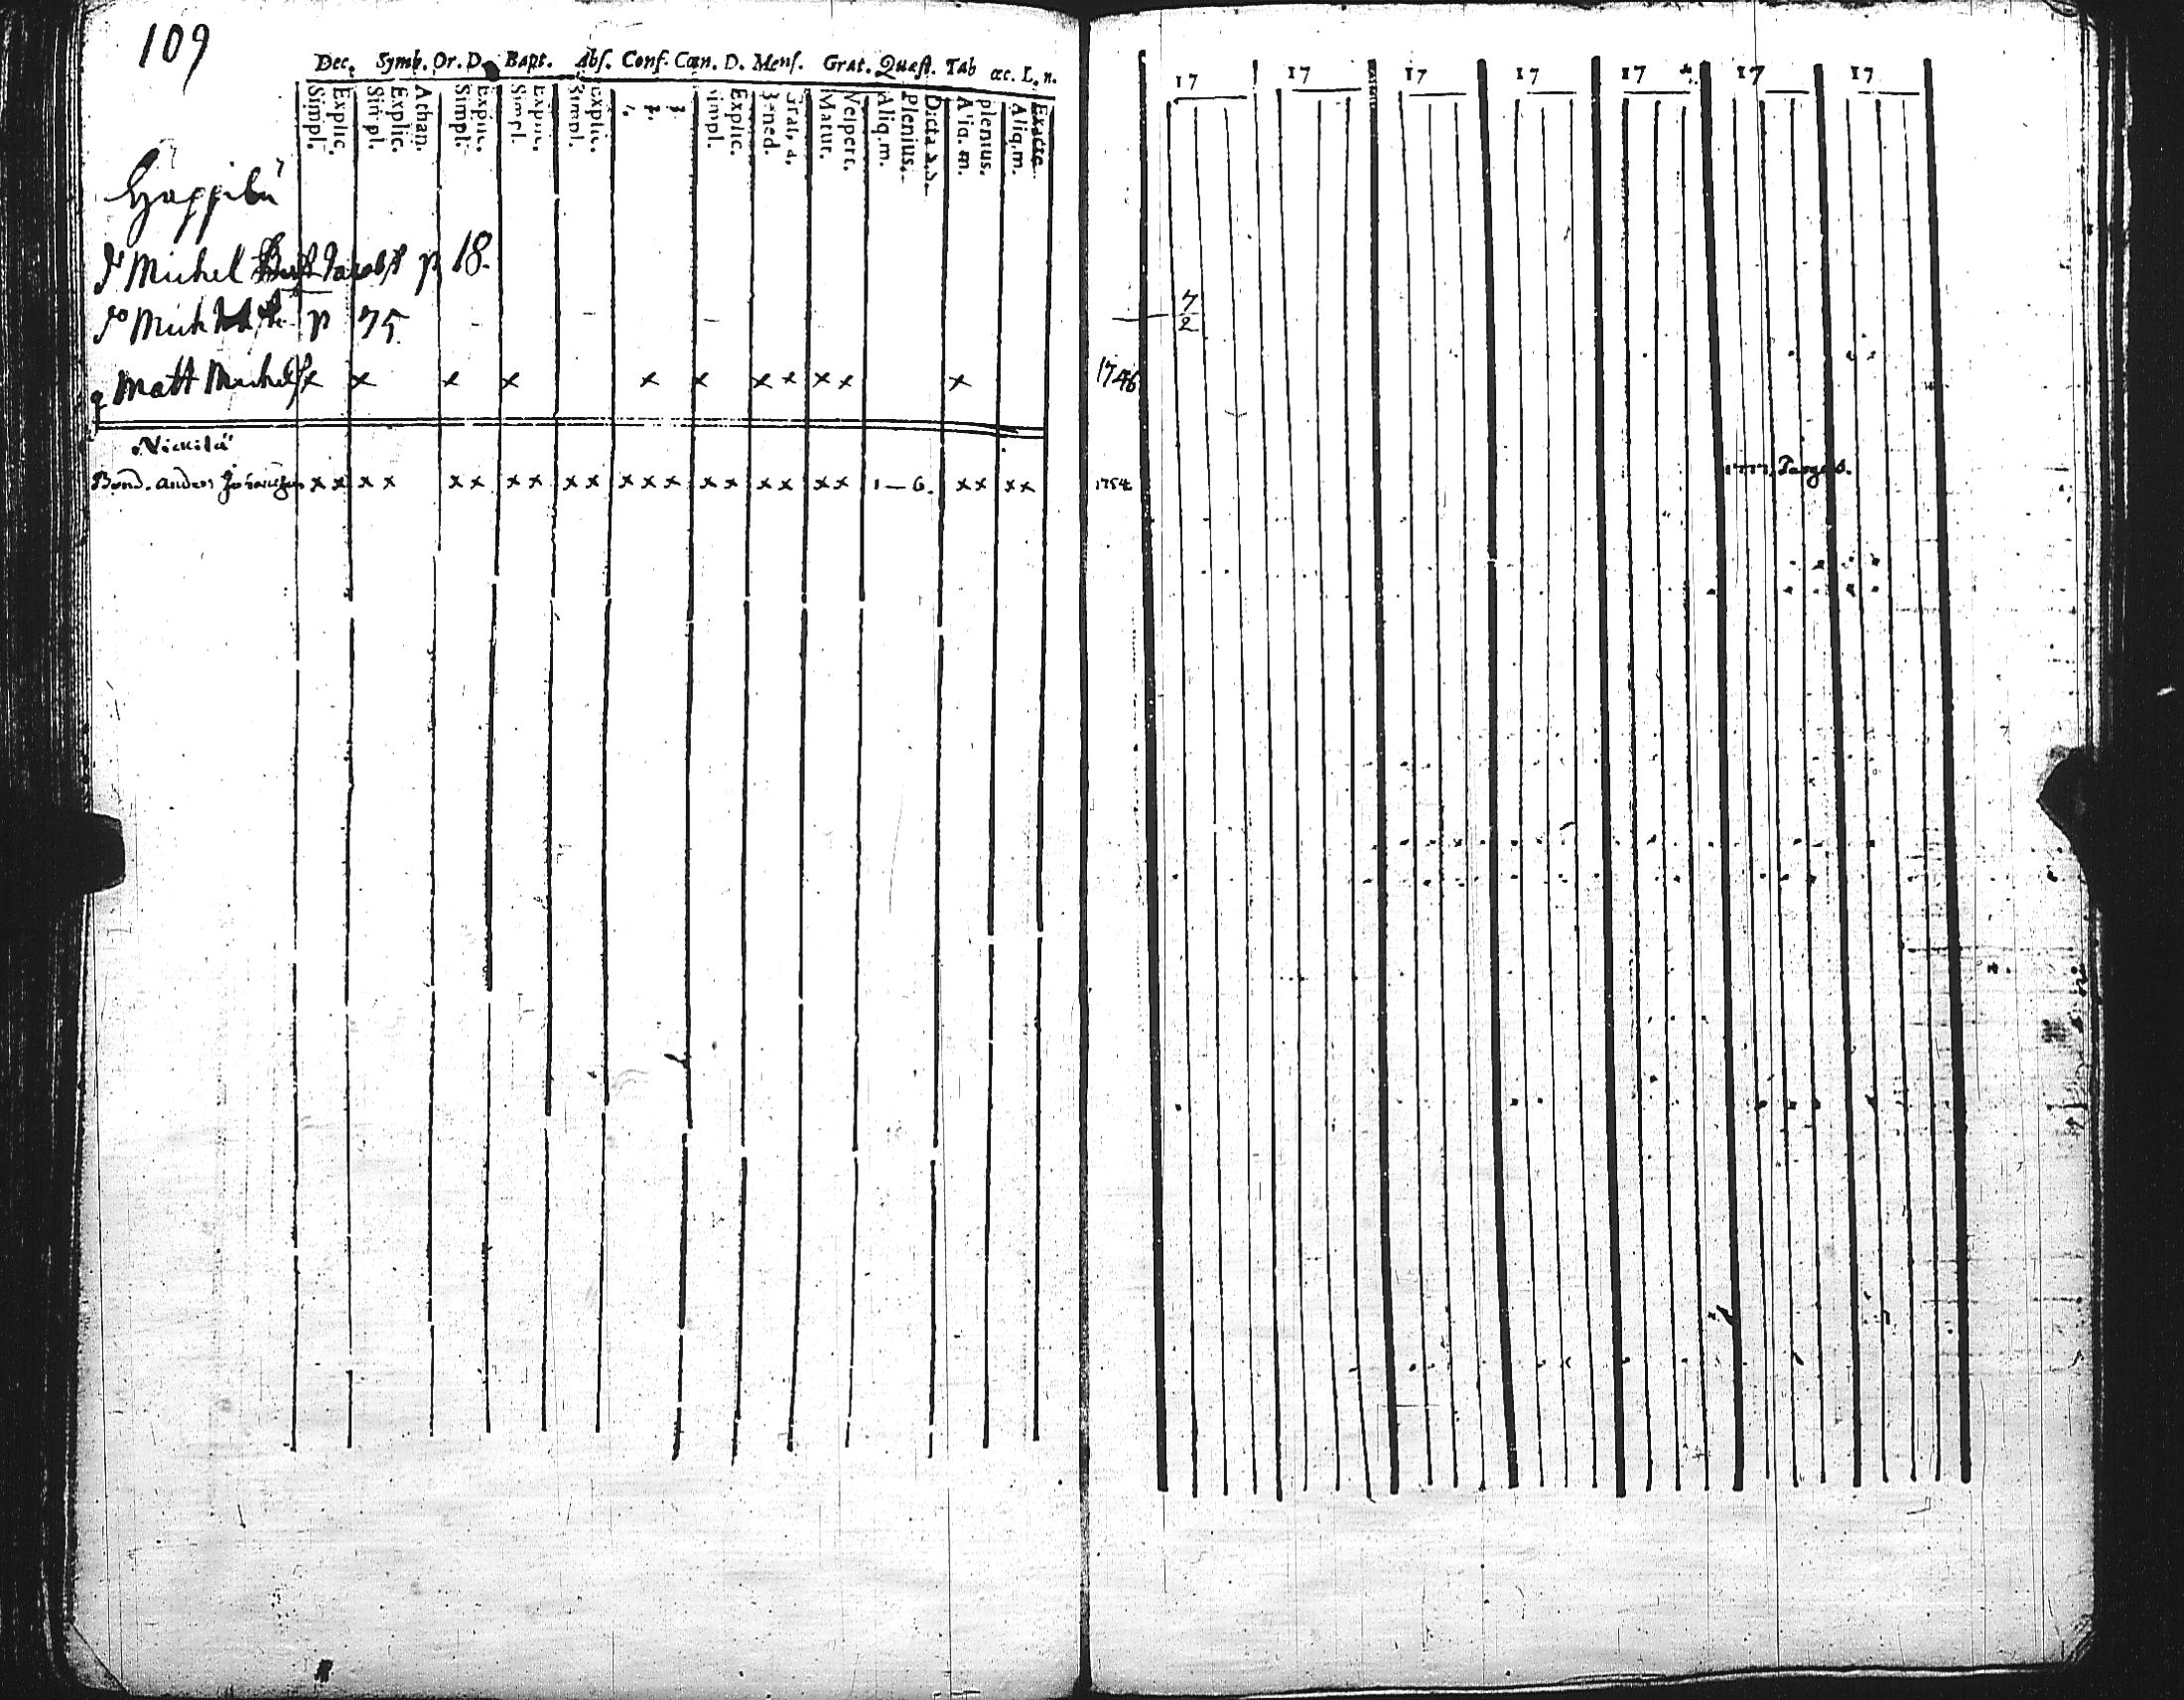 109
Dec. Symb. Or. D. Bapt. Abs. Conf. Cœn. D. Mens. Grat. Quæst. Tab œc. L. n.
Simpl. Explic. Simpl. Explic. Athan. Simpl. Explic. Simpl. Explic. Simpl. Explic. 1. 2. 3. Simpl. Explic. Bened. Grat. a. Matut. Vespert. Aliq. m. Plenius. Dicta s. d. Aliq. m. plenius. Aliq. m. Exacte
Michel p 18.
p 75
Matt Michels x x x x x x x x x x x
Bond. Anders x x x x x x x x x x x x x x x x x x x 1 — 6. x x x x
17 17 17 17 17 17 17
7
2
1746
1754
1777.